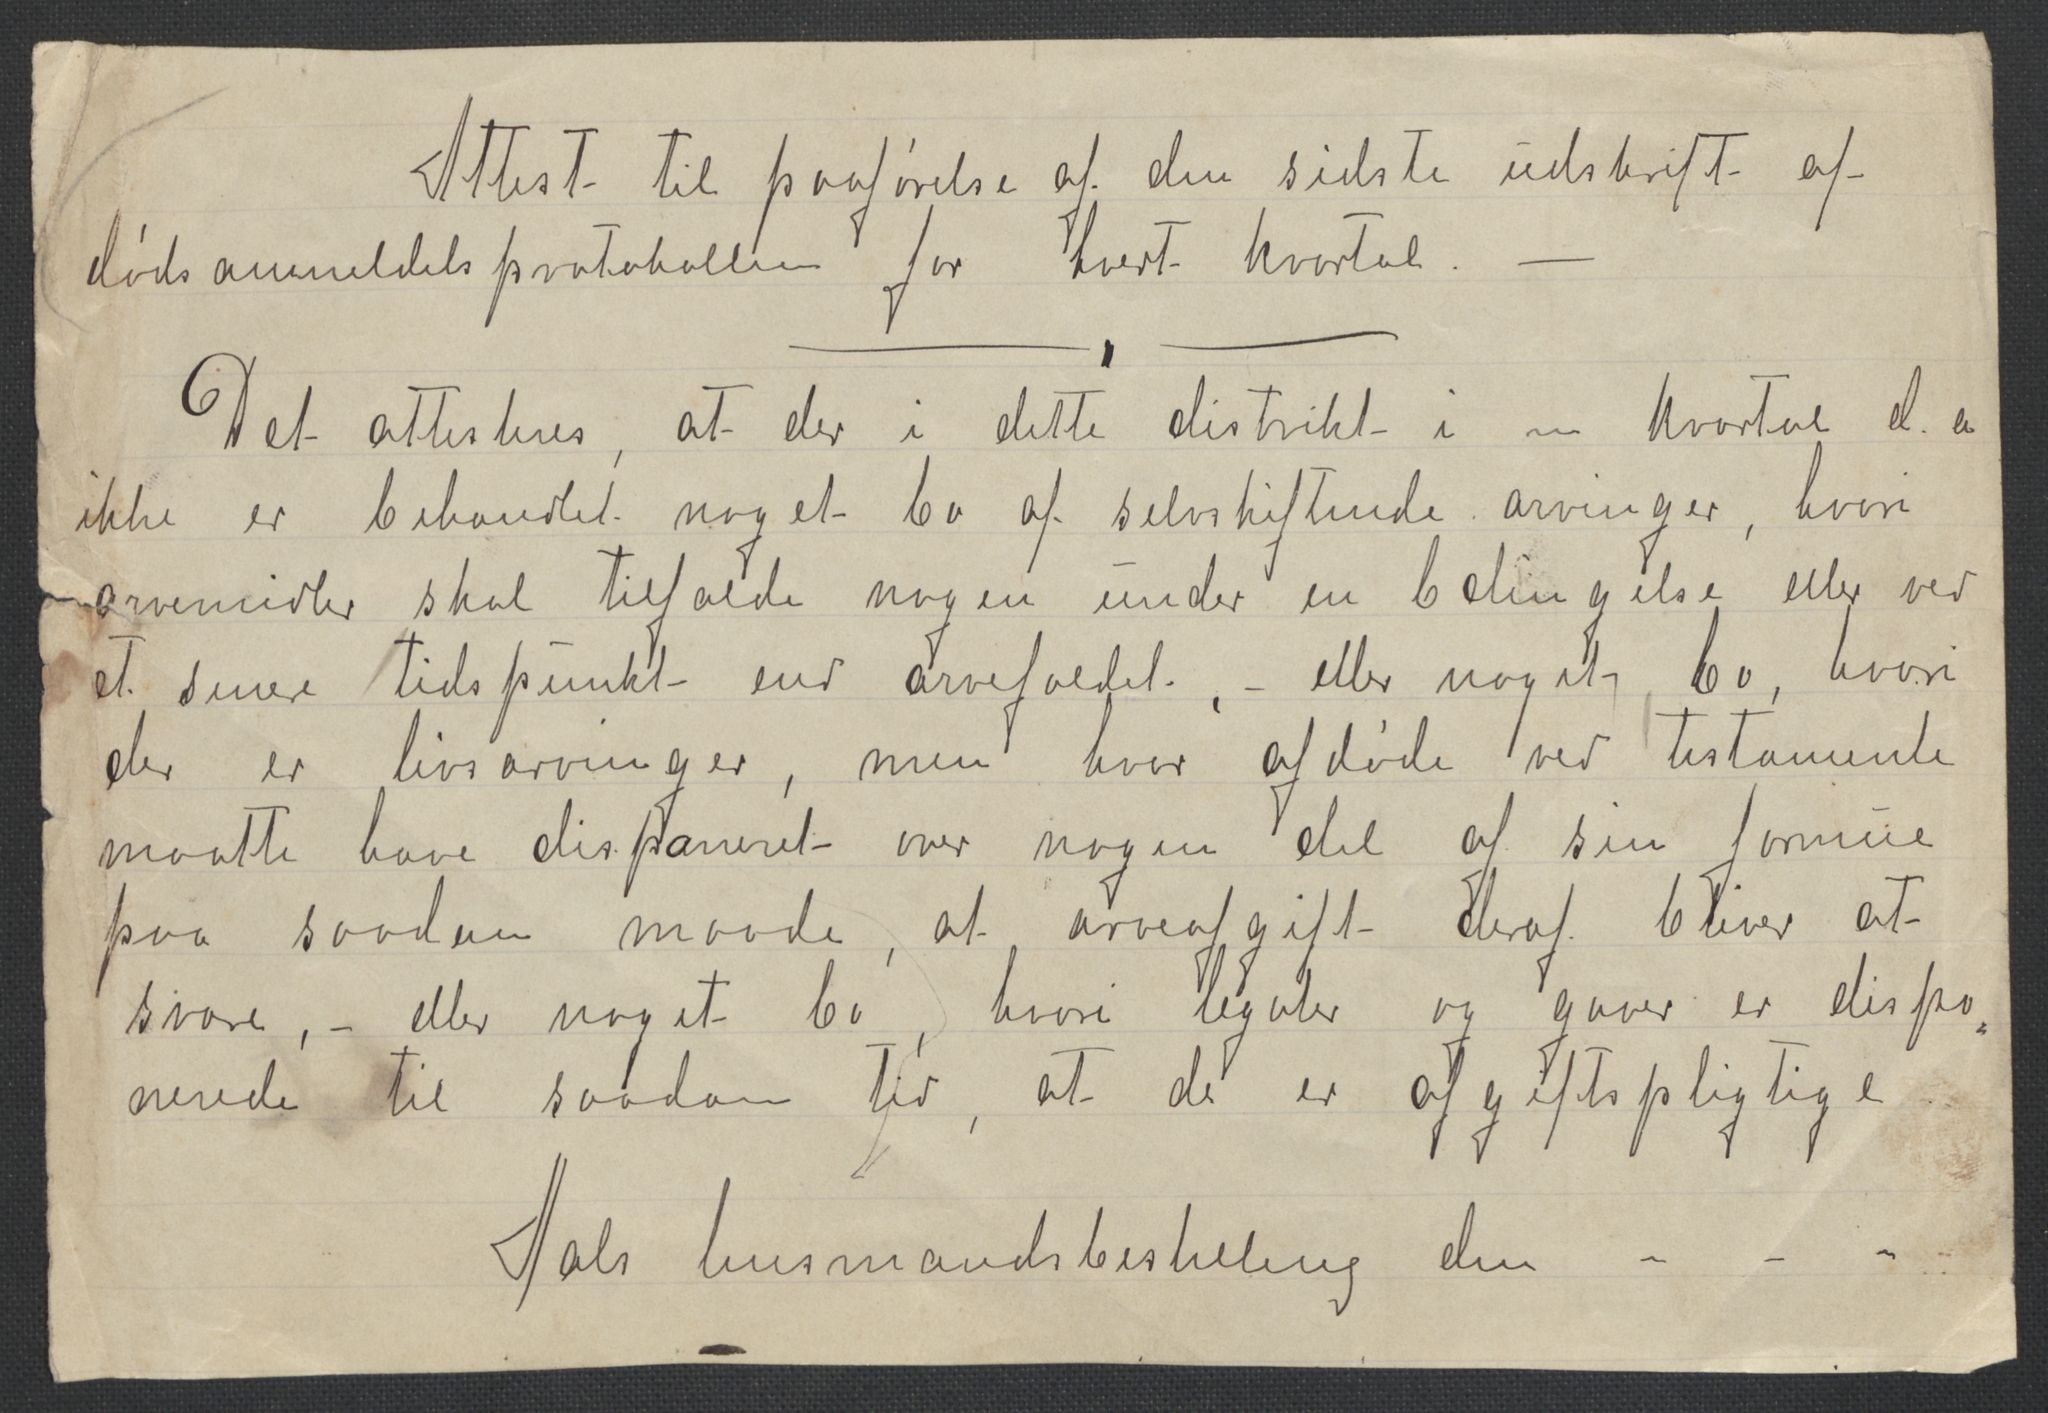 Attest til paaførelse af den sidste udskrift af
dødsanmeldelsprotokollen for hvert kvartal. —
Det attesteres, at der i dette distrikt i — kvartal d. a
ikke er behandlet noget bo af selvskiftende arvinger, hvori
arvemidler skal tilfalde nogen under en bedingelse eller ved
et senere tidspunkt end arvefaldet, - eller noget bo, hvori
der er livsarvinger, men hvor afdøde ved testamente
maatte have disponeret over nogen del af sin formue
paa saadan maade, at arveafgift deraf bliver at
svare, - eller noget bo, hvori legater og gaver er dispo„
nerede til saadan tid, at de er afgiftspligtige
Hals lensmandsbestilling den - - -